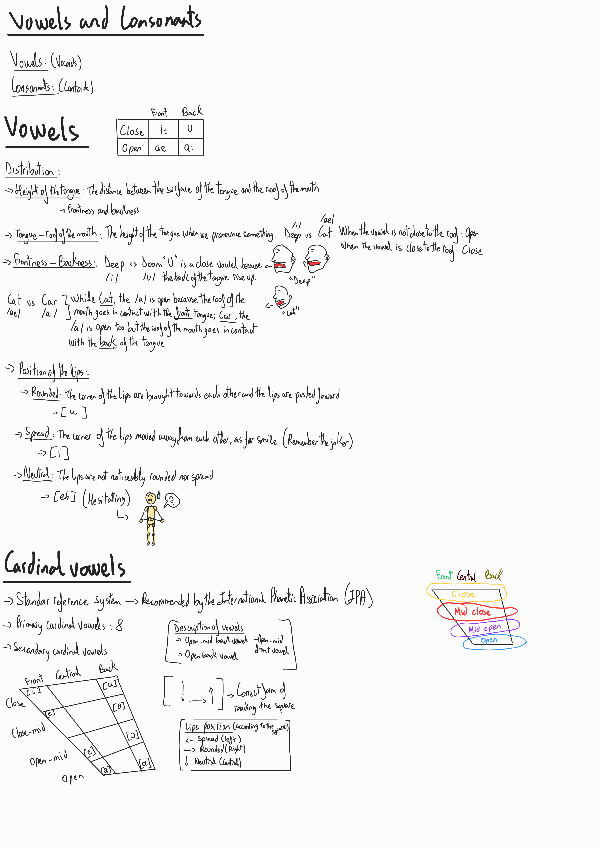 Vowels and Consonants
Vowels: (Vocoids)
Consonants: (Contoids)
Vowels
Front Back
Close i: U
Open ae a:
Distribution:
→ Height of the tongue: The distance between the surface of the tongue and the roof of the mouth
→ Frontness and backness
→ Tongue – roof of the mouth: The height of the tongue when we pronounce something. Deep vs Cat
/i/ /ae/
When the vowel is not close to the roof: Open
When the vowel is close to the roof: Close
→ Frontness – Backness: Deep vs Doom "U" is a close vowel because
/i/ /u/ the back of the tongue rise up.
"Deep"
"Cat"
Cat vs Car While Cat, the /a/ is open because the roof of the
/ae/ /a/ mouth goes in contact with the front tongue; Car, the
/a/ is open too but the roof of the mouth goes in contact
with the back of the tongue
→ Position of the lips:
→ Rounded: The corner of the lips are brought towards each other and the lips are pushed forward
→ [u]
→ Spread: The corner of the lips moved away from each other, as for smile (Remember the joker)
→ [i]
→ Neutral: The lips are not noticeably rounded nor spread
→ [eh] (Hesitating)
?
Cardinal vowels
→ Standar reference system → Recommended by the International Phonetic Association (IPA)
→ Primary cardinal vowels: 8
→ Secondary cardinal vowels
Front Central Back
Close [i] [u]
Close-mid [e] [o]
Open-mid [ɛ] [ɔ]
Open [a] [ɑ]
Description of vowels
→ Open-mid back vowel → Open-mid front vowel
→ Open back vowel
[ ↓ → ↑ ] → Correct form of
reading the square
Lips position (according to the square)
← Spread (left)
→ Rounded (Right)
↓ Neutral (Central)
Front Central Back
Close
Mid close
Mid open
Open